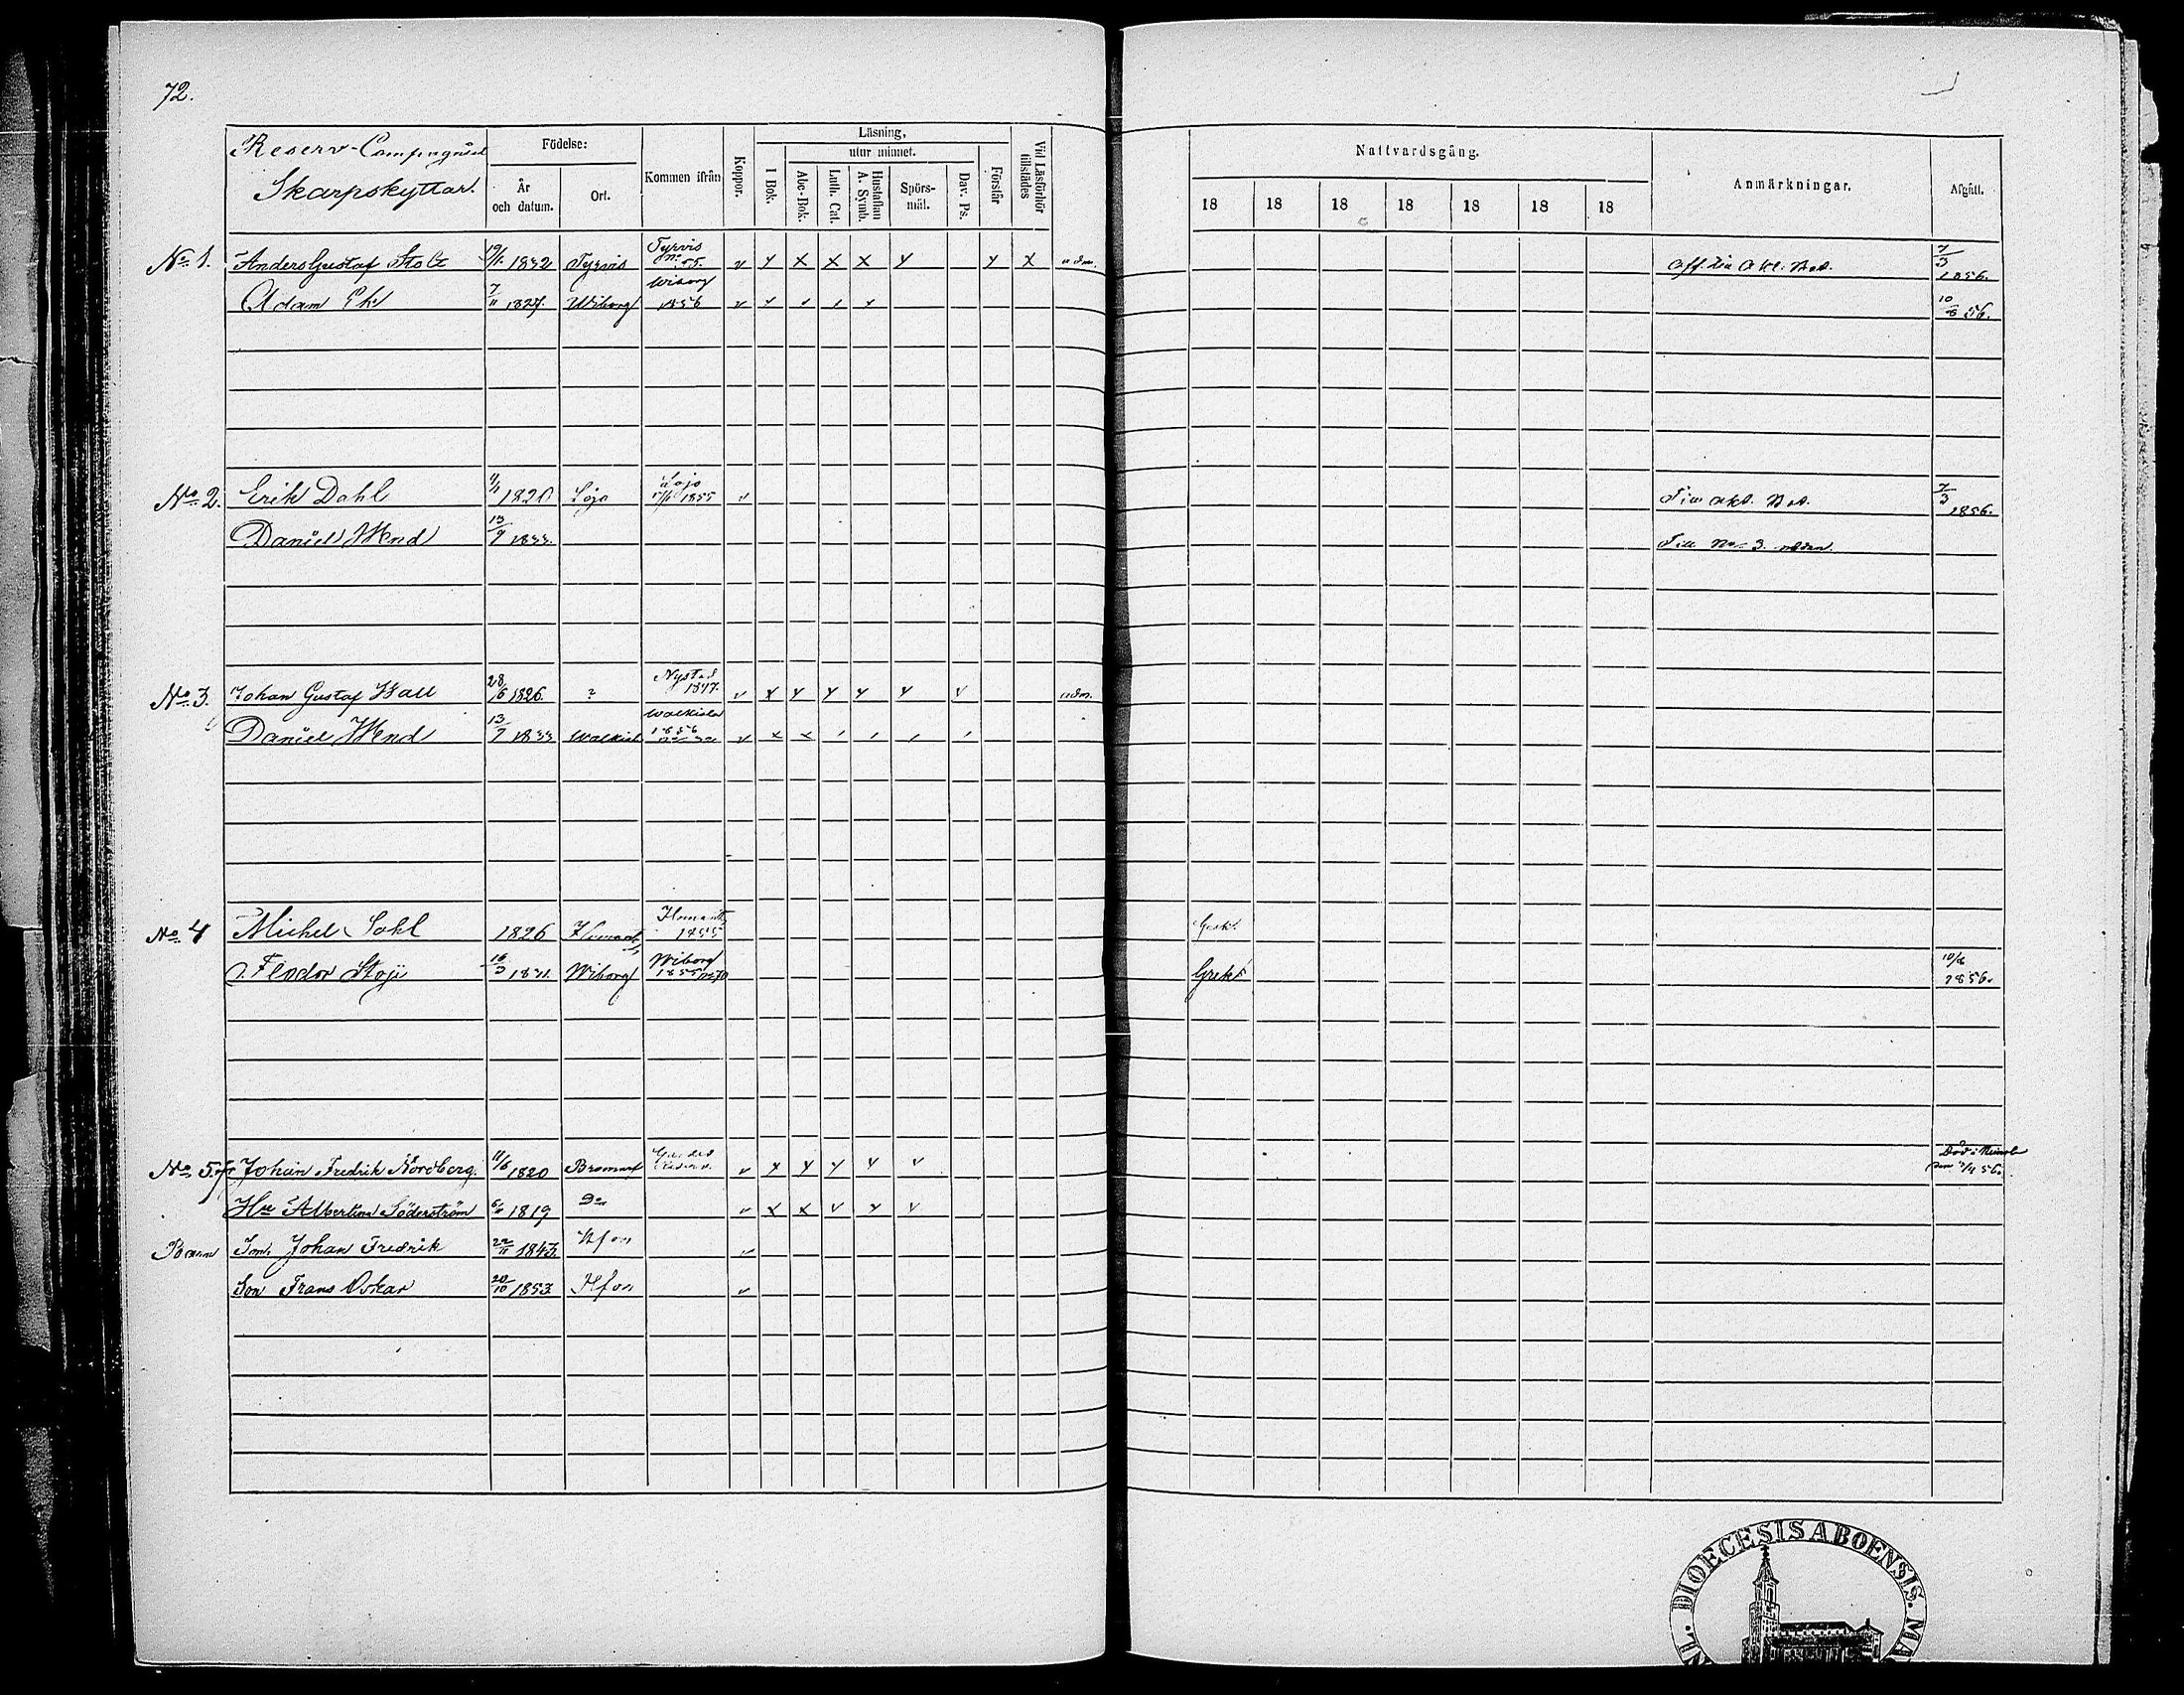 72.
Reserv-Compagniet
Skarpskyttar.
Födelse:
År och datum.
Ort.
Kommen ifrån
Koppor.
Läsning,
I Bok.
utur minnet.
Abc-Bok.
Luth. Cat.
Hustaflan A. Symb.
Spörsmål.
Dav. Ps.
Förstår
Vid Läsförhör tillstädes
Nattvardsgång.
18 18 18 18 18 18 18
Anmärkningar.
Afgått.
No. 1. Anders Gustaf Stolt 19/1 1832 Tyrvis Tyrvis 55. v y x x x y y x adm. 7/3 1856.
Adam Ek 7/11 1827. Wiborg Wiborg 1856 10/6 56.
No. 2. Erik Dahl 1820 Lojo Lojo 1855 v 7/3 1856.
Daniel Wend 13/9 1833. Till No. 3. nedan.
No. 3. Johan Gustaf Wall 28/6 1826. ? Nystad 1847. v x y y y y v adm.
Daniel Wend 13/9 1833 1856
No. 4 Michel Sohl 1826 1855 Grek.
Feodor 16/3 1831. Wiborg Wiborg 1855 Grek. 10/6 1856.
No. 5. Johan Fredrik Nordberg. 11/6 1820 Bromarf v y y y y v Död i
Hu Albertina Söderström 1819 Do v x x v y v
Barn Son Johan Fredrik 22/11 1843. Hfors v
Son Frans Oskar 20/10 1853. Hfors v
DIOECESIS ABOENSIS. MA